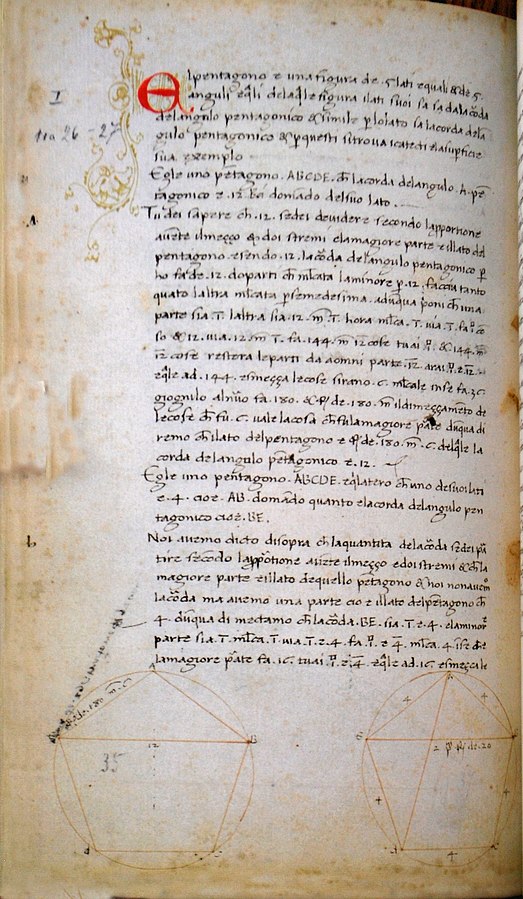 El pentagono e una figura de .5. lati equali & de .5.
anguli eq̄li delaq̄le figura ilati suoi sa sa dala corda
delangulo pentagonico & simile p̄ lolato sa lacorda dela
gulo pentagonico & p̄ questi sitrova icateti elasuperficie
sua exemplo
Egle uno pētagono .ABCDE. ch̄ lacorda delangulo .A. pē
tagonico e .12. Be domādo delsuo lato.
Tu dei sapere ch̄ .12. sedei devidere secondo lapportione
avēte ilmeççο & doi stremi elamagiore parte e illato del
pentagono. esendo .12. lacorda de langulo pentagonico p̄
ho fa de .12. do parti ch̄ mlcata laminore p̄ .12. faccia tanto
quāto laltra mlcata p̄ semedesima. adūqua poni ch̄ una
parte sia .1̄. laltra sia .12. m̄ .1̄. hora mlca .1̄. via .1̄. fa
so & 12. via .12. m̄ 1̄. fa .144. m̄ 12 cose tu ai & 144. m̄
12 cose restora leparti da aomni parte
eq̄le ad .144. esmeçça lecose sirano .6. mlcale inse fa .36.
giognilo al nūo fa .180. & de .180. m̄ ildimeççamēto de
lecose ch̄ fu .6. vale lacosa ch̄ fu lamagiore pāte dūqua di
remo ch̄ ilato delpentagono e de .180. m̄ .6. delq̄le la
corda delangulo pētagonico e .12.
Egle uno pentagono .ABCDE. eq̄latero ch̄ uno desuoi lati
e .4. cioe .AB. domādo quanto elacorda delangulo pen
tagonico cioe .BE.
Noi avemo dicto disopra ch̄ laquantita dela corda sedei pā
tire secōdo lapportione avēte ilmeçço edoi stremi & ch̄ la
magiore parte e illato dequello pētagono & noi nonavem̄
lacorda ma avemo una parte cio e illato delpētagono ch̄
4. dūqua di mectamo ch̄ lacorda .BE. sia .1̄. e .4. elaminor
parte sia .1̄. mlca. .1̄. via .1̄. e .4. fa e 4̄. mlca .4. i se ch̄ e
lamagiore pāte fa .16. tu ai e 4̄. eq̄le ad .16. esmeçça le
I
tra 26 - 27
a
b
A
de 180 m̄ 6
12
B
35
d
c
A
4
4
e
2 p̄ de .20
4
d
4
c